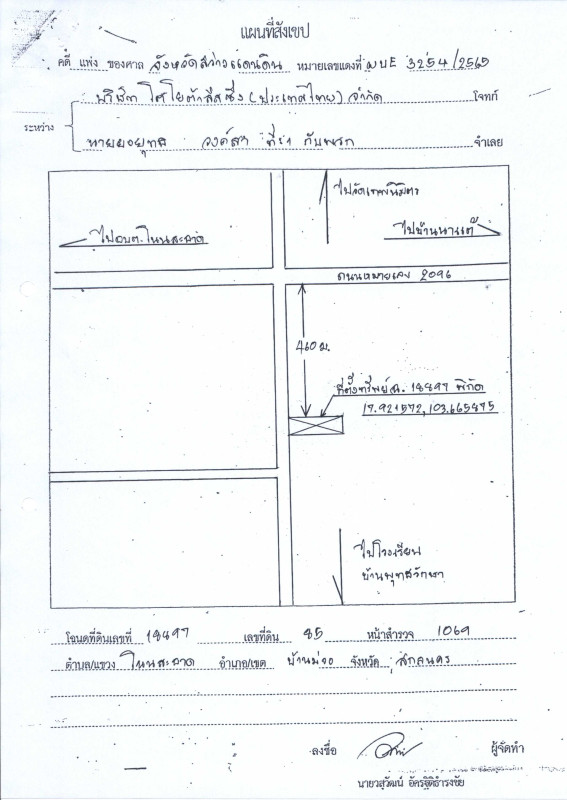 แผนที่สังเขป
คดี แพ่ง ของศาล จังหวัดสว่างแดนดิน หมายเลขแดงที่ ผบE 3254/2565
บริษัท โตโยต้าลีสซิ่ง (ประเทศไทย) จำกัด โจทก์
ระหว่าง
วงศ์ลา ที่ 1 กับพวก จำเลย
ไปวัดเทพนิมิตร
ไปอบต.โนนสะอาด
ไปบ้านนาเต่
ถนนหมายเลข 2096
460 ม.
ที่ตั้งทรัพย์ฉ. 18897 พิกัด
17.921572,103.665875
ไปโรงเรียน
บ้านพุทธรักษา
โฉนดที่ดินเลขที่ 18897 เลขที่ดิน 85 หน้าสำรวจ 1069
ตำบล/แขวง โนนสะอาด อำเภอ/เขต บ้านม่วง จังหวัด สกลนคร
ลงชื่อ ผู้จัดทำ
นายวสุวัฒน์ อัครฐิติธำรงชัย